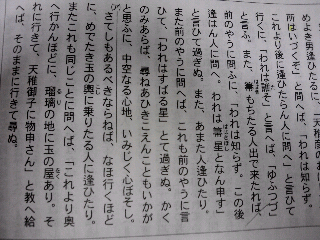 めよき男逢ひたるに、「天稚御
所はいづくぞ」と問へば、「われは知らず。
これより後に逢ひたらん人に問へ」と言ひて
行くに、「われは誰そ」と言へば、「ゆふづつ」
と言ふ。また、箒もちたる人出で来たれば、
前のやうに問ふに、「われは知らず。この後
逢はん人に問へ。われは箒星となん申す」
と言ひて過ぎぬ。また、あまた人逢ひたり。
また前のやうに問へば、これも前のやうに言
ひて、「われはすばる星」とて過ぎぬ。かく
のみあらば、尋ねあひきこえんこともいかが
と思ふに、中空なる心地、いみじく心ぼそし。
さてしもあるべきならねば、なほ行くほど
に、めでたき玉の輿に乗りたる人に逢ひたり。
またこれも同じごとに問へば、「これより奥
へ行かんほどに、瑠璃の地に玉の屋あり。そ
れに行きて、天稚御子に物申さん」と教へ給
へば、そのままに行きて尋ぬ。